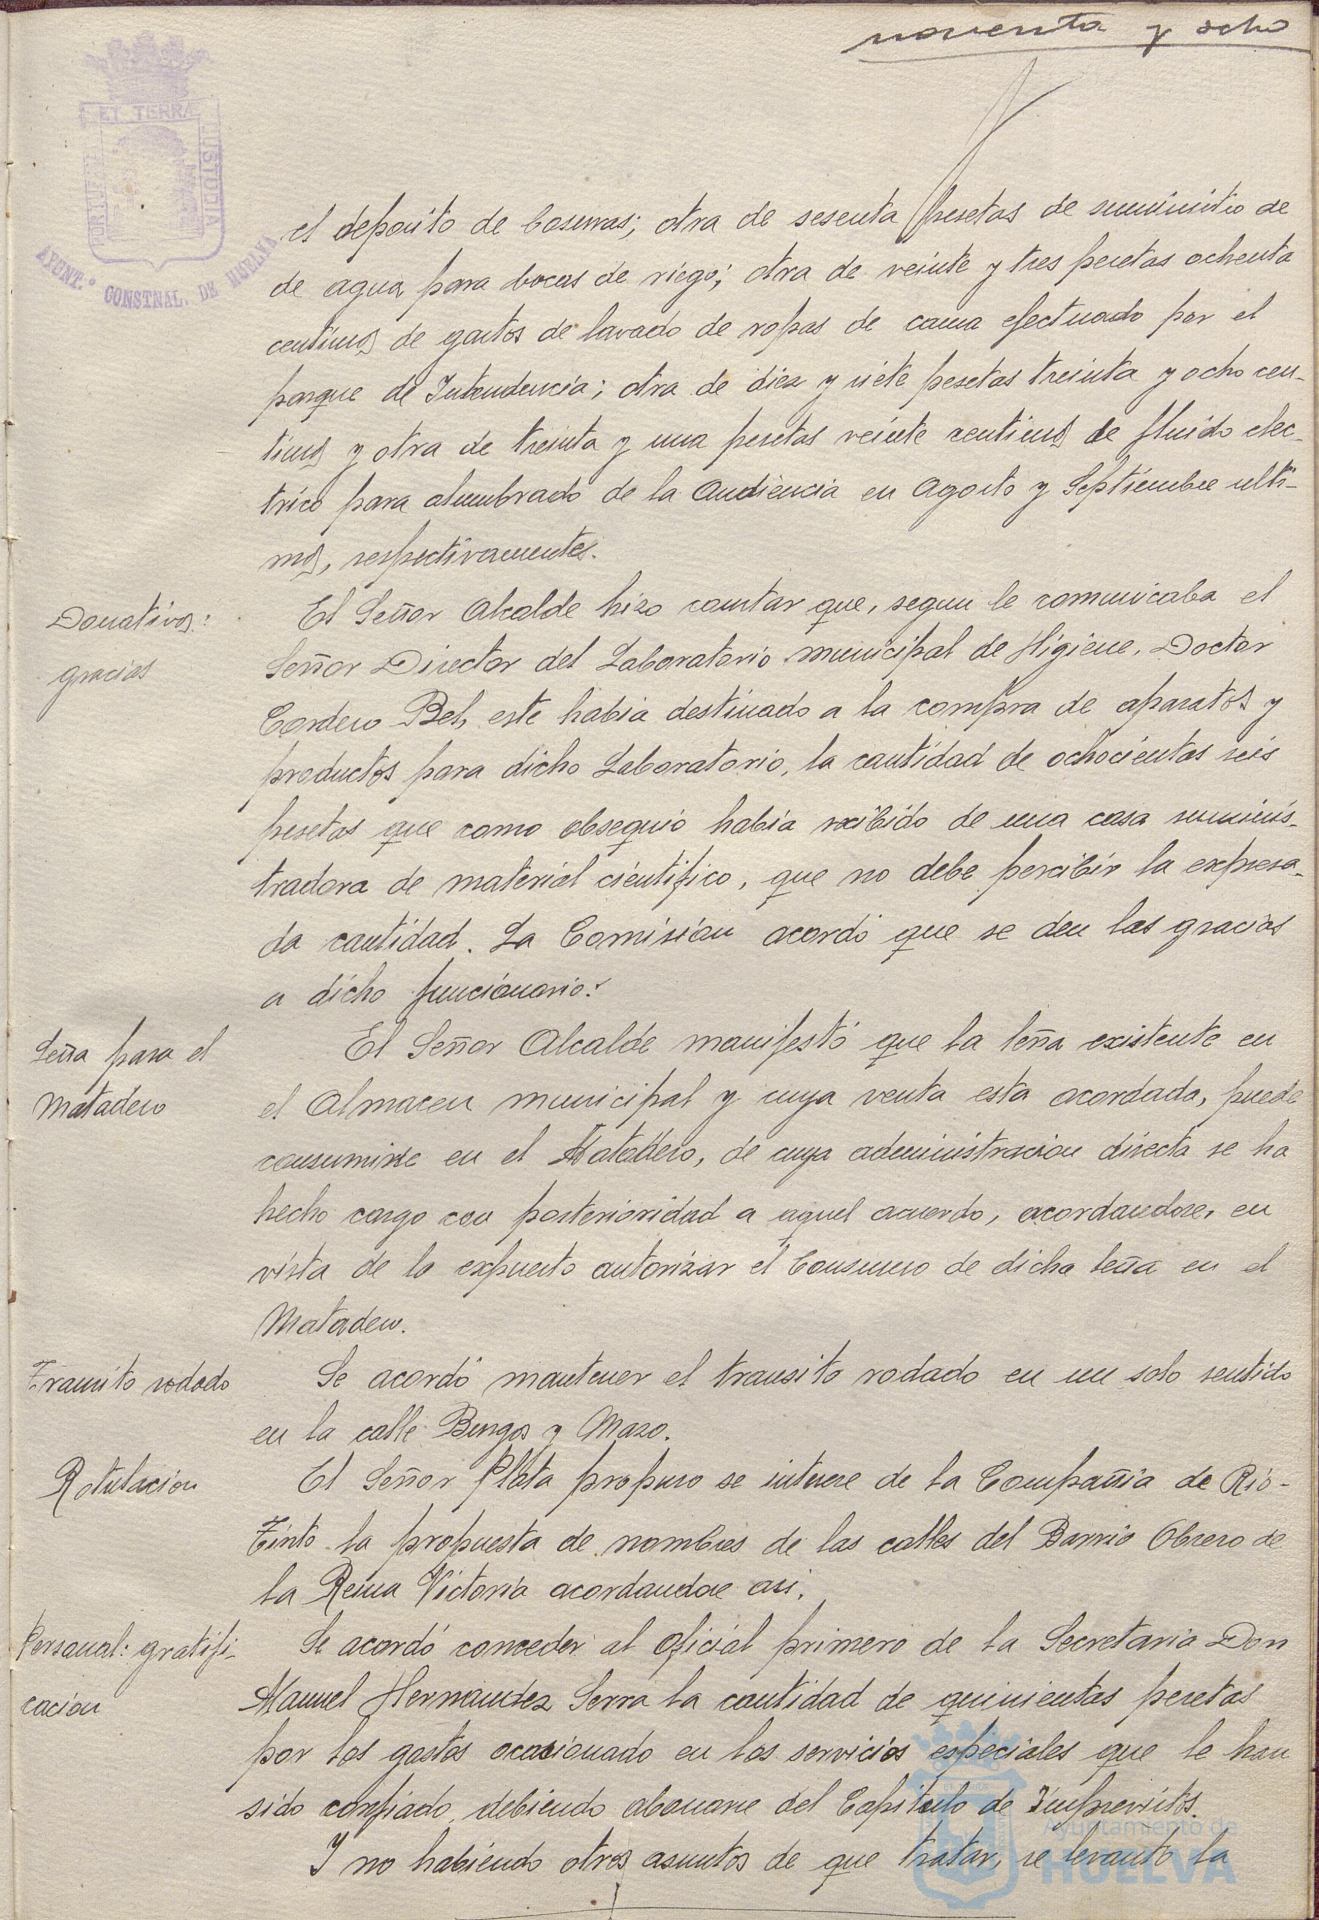 noventa y ocho
ET TERRÆ
PORTUS MARIS
CUSTODIA
AYUNT.º CONSTNAL. DE HUELVA
el deposito de basuras; otra de sesenta pesetas de suministro de
de agua para bocas de riego; otra de veinte y tres pesetas ochenta
centimos de gastos de lavado de ropas de cama efectuado por el
parque de Intendencia; otra de diez y siete pesetas treinta y ocho cen-
timos y otra de treinta y una pesetas veinte centimos de fluido elec-
trico para alumbrado de la Audiencia en Agosto y Septiembre ulti-
mos, respectivamentes.
Donativos:
gracias
El Señor Alcalde hizo constar que, segun le comunicaba el
Señor Director del Laboratorio municipal de Higiene, Doctor
Cordero Bel, este habia destinado a la compra de aparatos y
productos para dicho Laboratorio, la cantidad de ochocientas seis
pesetas que como obsequio habia recibido de una casa suminis-
tradora de material cientifico, que no debe percibir la expresa-
da cantidad. La Comision acordó que se den las gracias
a dicho funcionario.
Leña para el
Matadero
El Señor Alcalde manifestó que la leña existente en
el Almacen municipal y cuya venta esta acordada, puede
consumirse en el Matadero, de cuya administracion directa se ha
hecho cargo con posterioridad a aquel acuerdo, acordandose, en
vista de lo expuesto autorizar el Consumo de dicha leña en el
Matadero.
Transito rodado
Se acordó mantener el transito rodado en un solo sentido
en la calle Burgos y Mazo.
Rotulacion
El Señor Plata propuso se interese de la Compañia de Rio-
Tinto la propuesta de nombres de las calles del Barrio Obrero de
la Reina Victoria acordandose asi.
Personal: gratifi-
cacion
Se acordó conceder al oficial primero de la Secretaria Don
Manuel Hernandez Serra la cantidad de quinientas pesetas
por los gastos ocasionado en los servicios especiales que le han
sido confiado, debiendo abonarse del Capitulo de Imprevistos.
Y no habiendo otros asuntos de que tratar, se levantó la
Ayuntamiento de
HUELVA